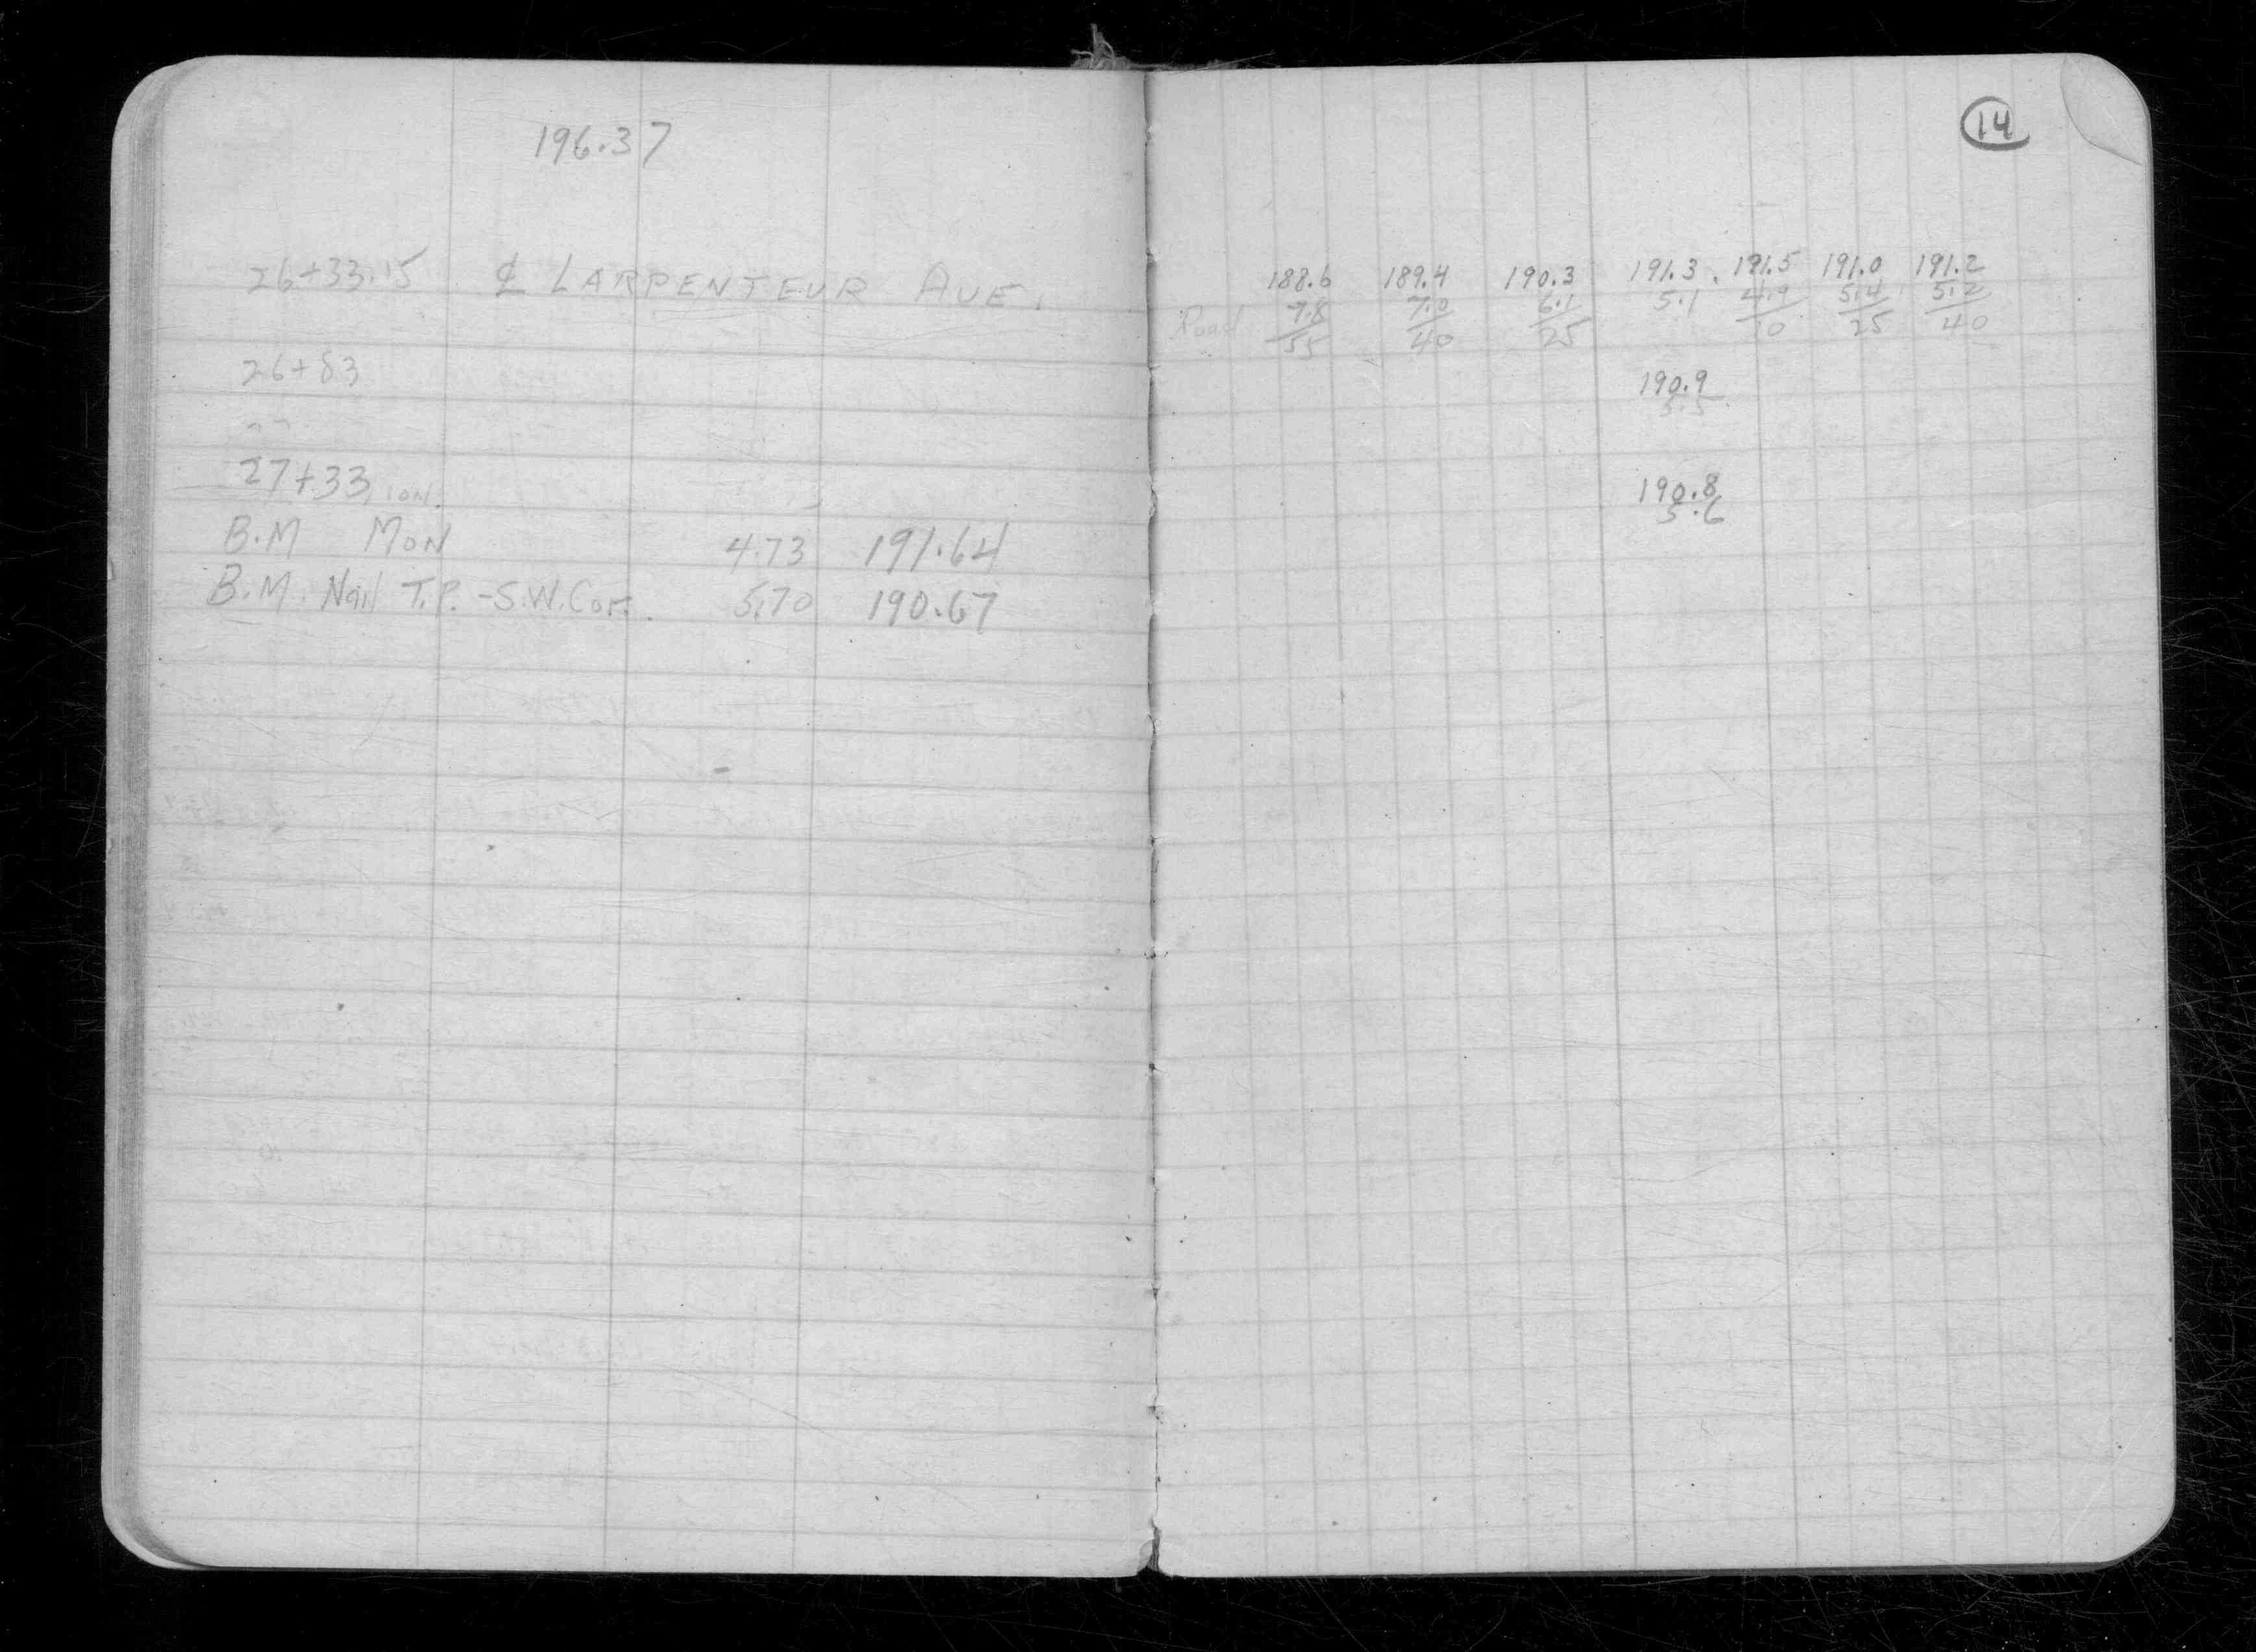 196.37
26+33.15 ℄ LARPENTEUR AVE.
26+83
27+33
B.M MON 4.73 191.64
B.M. Nail T.P. -S.W.Cor. 5.70 190.67
14
188.6 189.4 190.3 191.3 191.5 191.0 191.2
Road 7.8 7.0 6.1 5.1 4.9 5.4 5.2
55 40 25 10 25 40
190.9
5.5
190.8
5.6